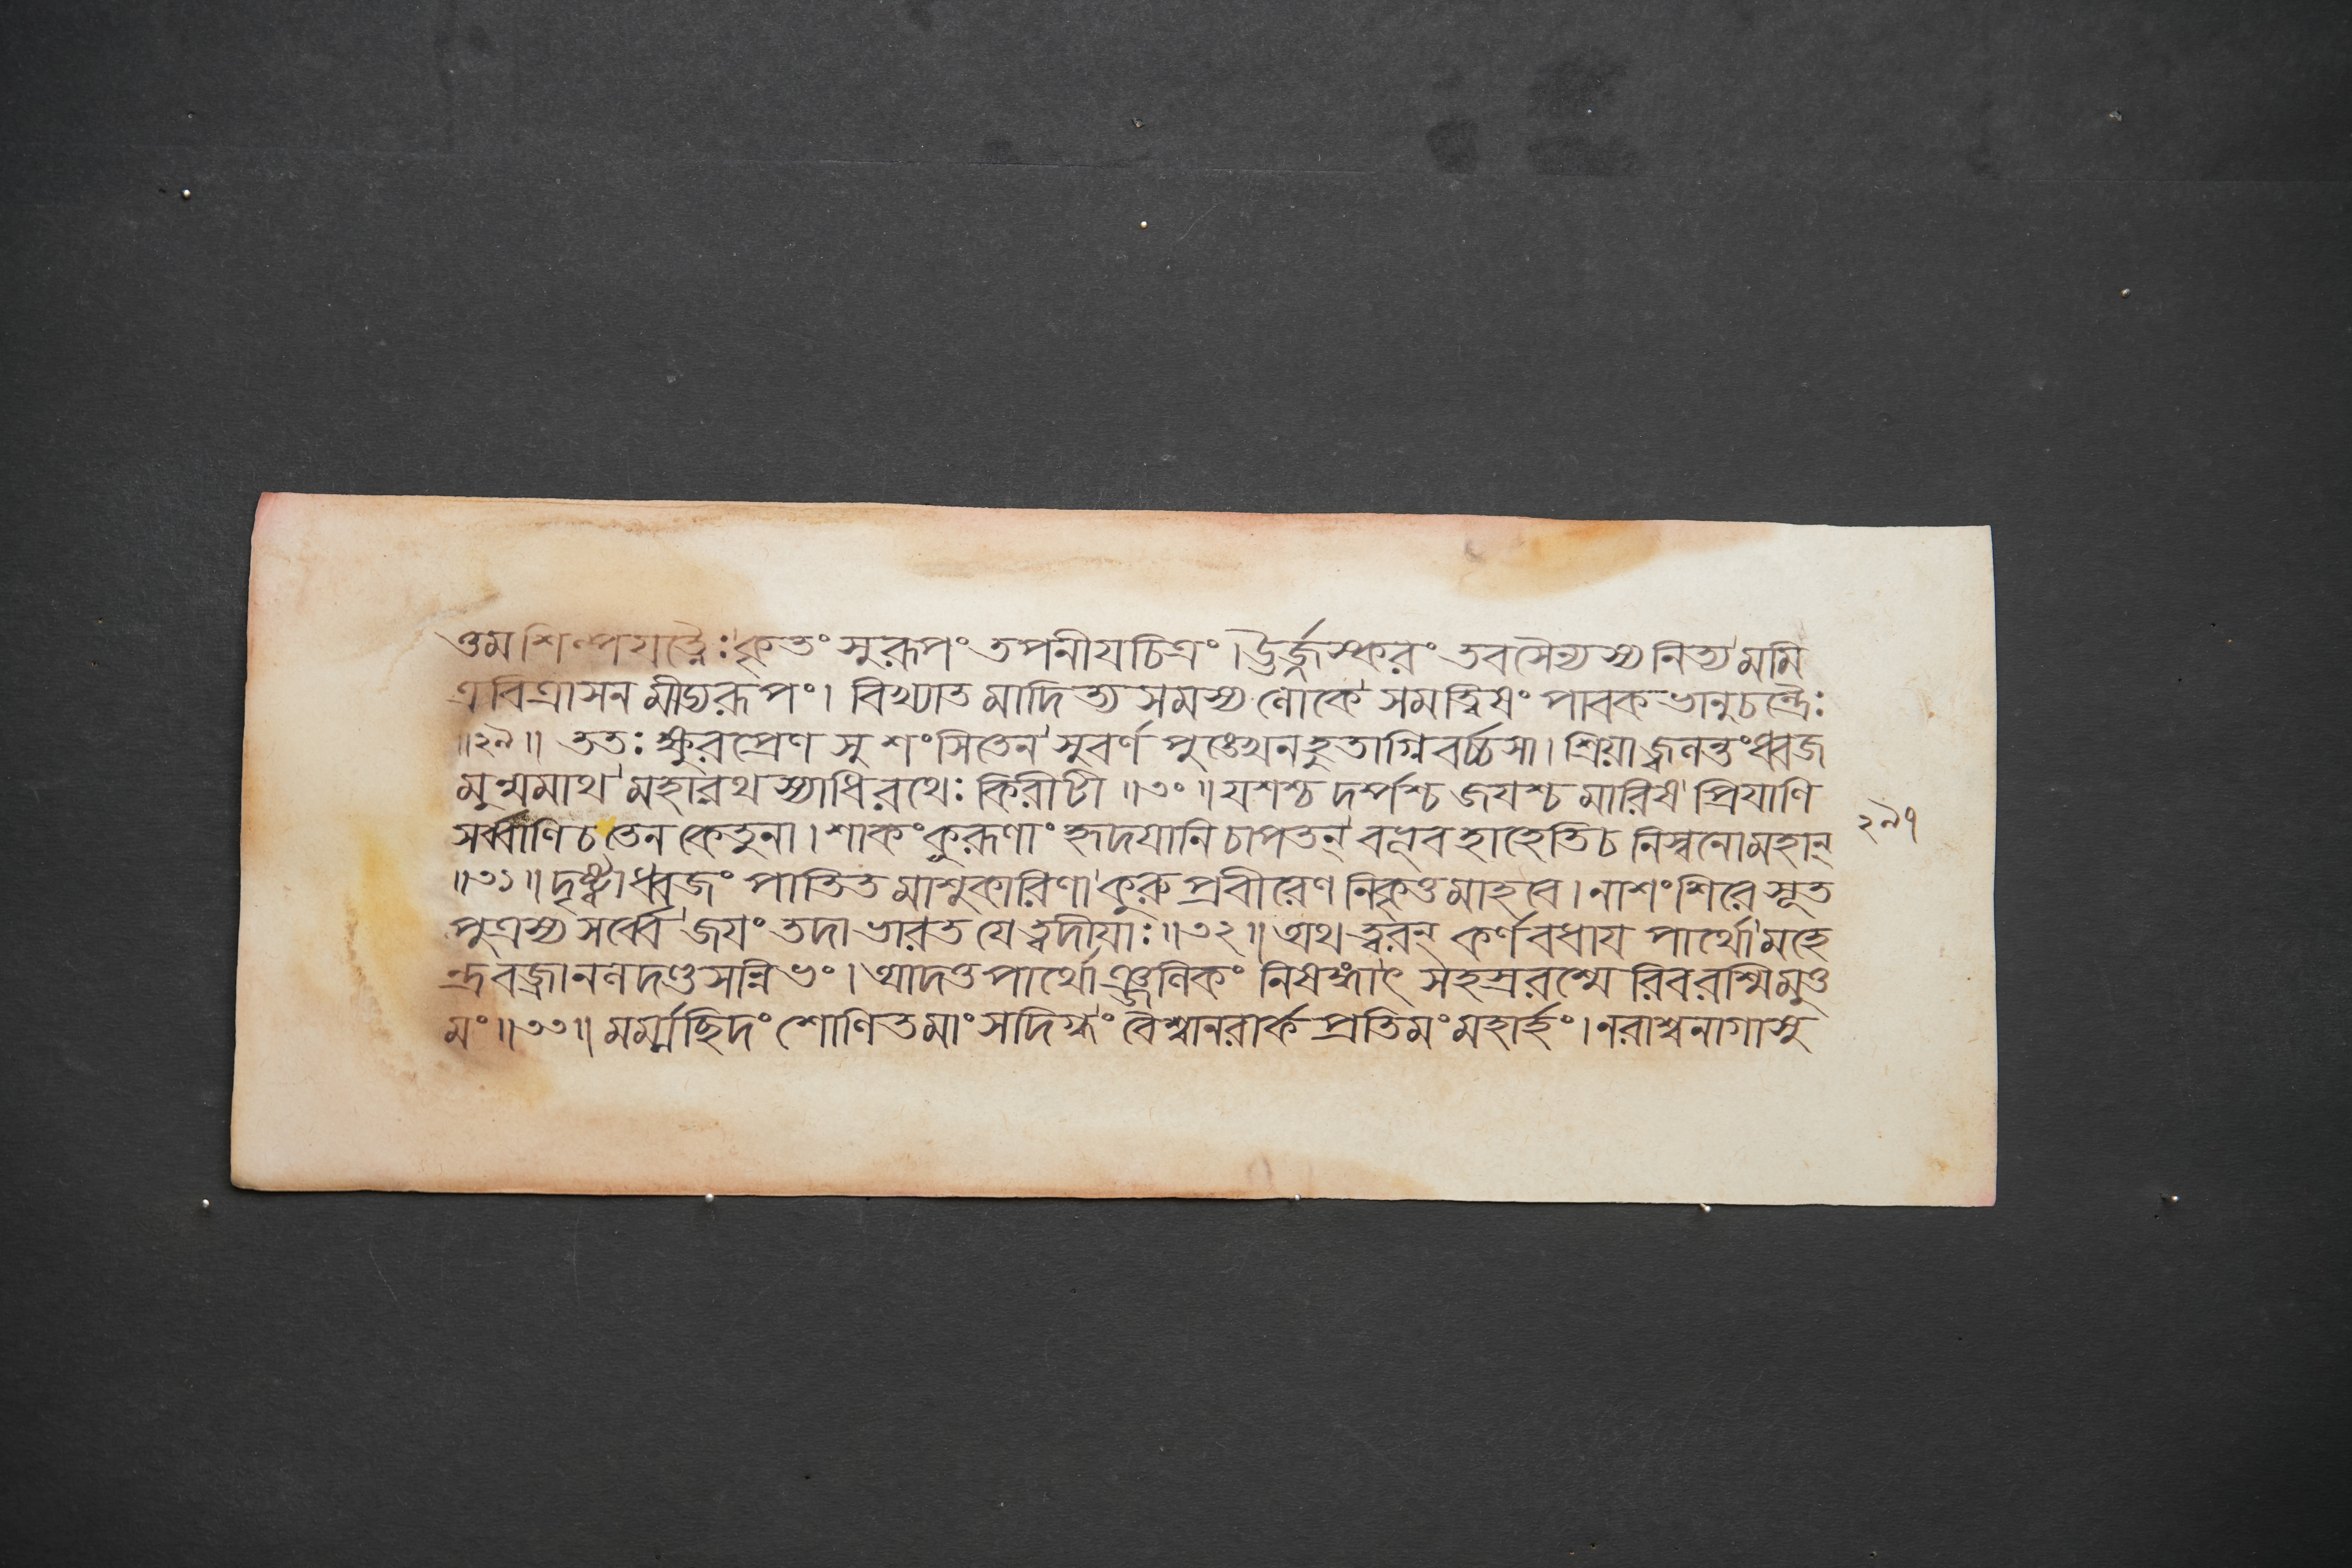 ত্তমশিল্পযত্নৈঃ কৃতং সুরূপং তপনীযচিত্রং। ঊর্জ্জস্করং তবসৈন্যস্য নিত্যমমি
ত্রবিত্রাসনমীড্যরূপং। বিখ্যাতমাদিত্যসমস্য লোকে সমত্বিষং পাবকভানুচন্দ্রৈঃ
॥২৯॥ ততঃ ক্ষুরপ্রেণ সুশংসিতেন সুবর্ণপুঙ্খেন হুতাগ্নিবর্চ্চসা। শ্রিয়া জ্বলন্তং ধ্বজ
মুন্মমাথ মহারথস্যাধিরথেঃ কিরীটী ॥৩০॥ যশশ্চ দর্পশ্চ জযশ্চ মারিষ প্রিযাণি
সর্ব্বাণি চ তেন কেতুনা। শাকং কুরূণাং হৃদযানি চাপতন্ বভূব হাহেতি চ নিস্বনো মহান্
॥৩১॥ দৃষ্ট্বা ধ্বজং পাতিতমাশুকারিণা কুরুপ্রবীরেণ নিকৃত্তমাহবে। নাশংশিরে সূত
পুত্রস্য সর্ব্বে জযং তদা ভারত যে ত্বদীযাঃ॥৩২॥ অথ ত্বরন্ কর্ণবধায পার্থো মহে
ন্দ্রবজ্রানলদণ্ডসন্নিভং। আদত্ত পার্থোঞ্জলিকং নিষঙ্গাৎ সহস্ররশ্মেরিব রশ্মিমুত্ত
মং॥৩৩॥ মর্ম্মাছিদং শোণিতমাংসদিগ্ধং বৈশ্বানরার্কপ্রতিমং মহার্হং। নরাশ্বনাগাসু
২৯৭